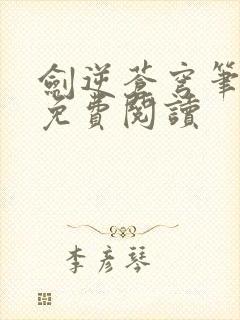 劍逆蒼穹筆
免費閱讀
李彥琴